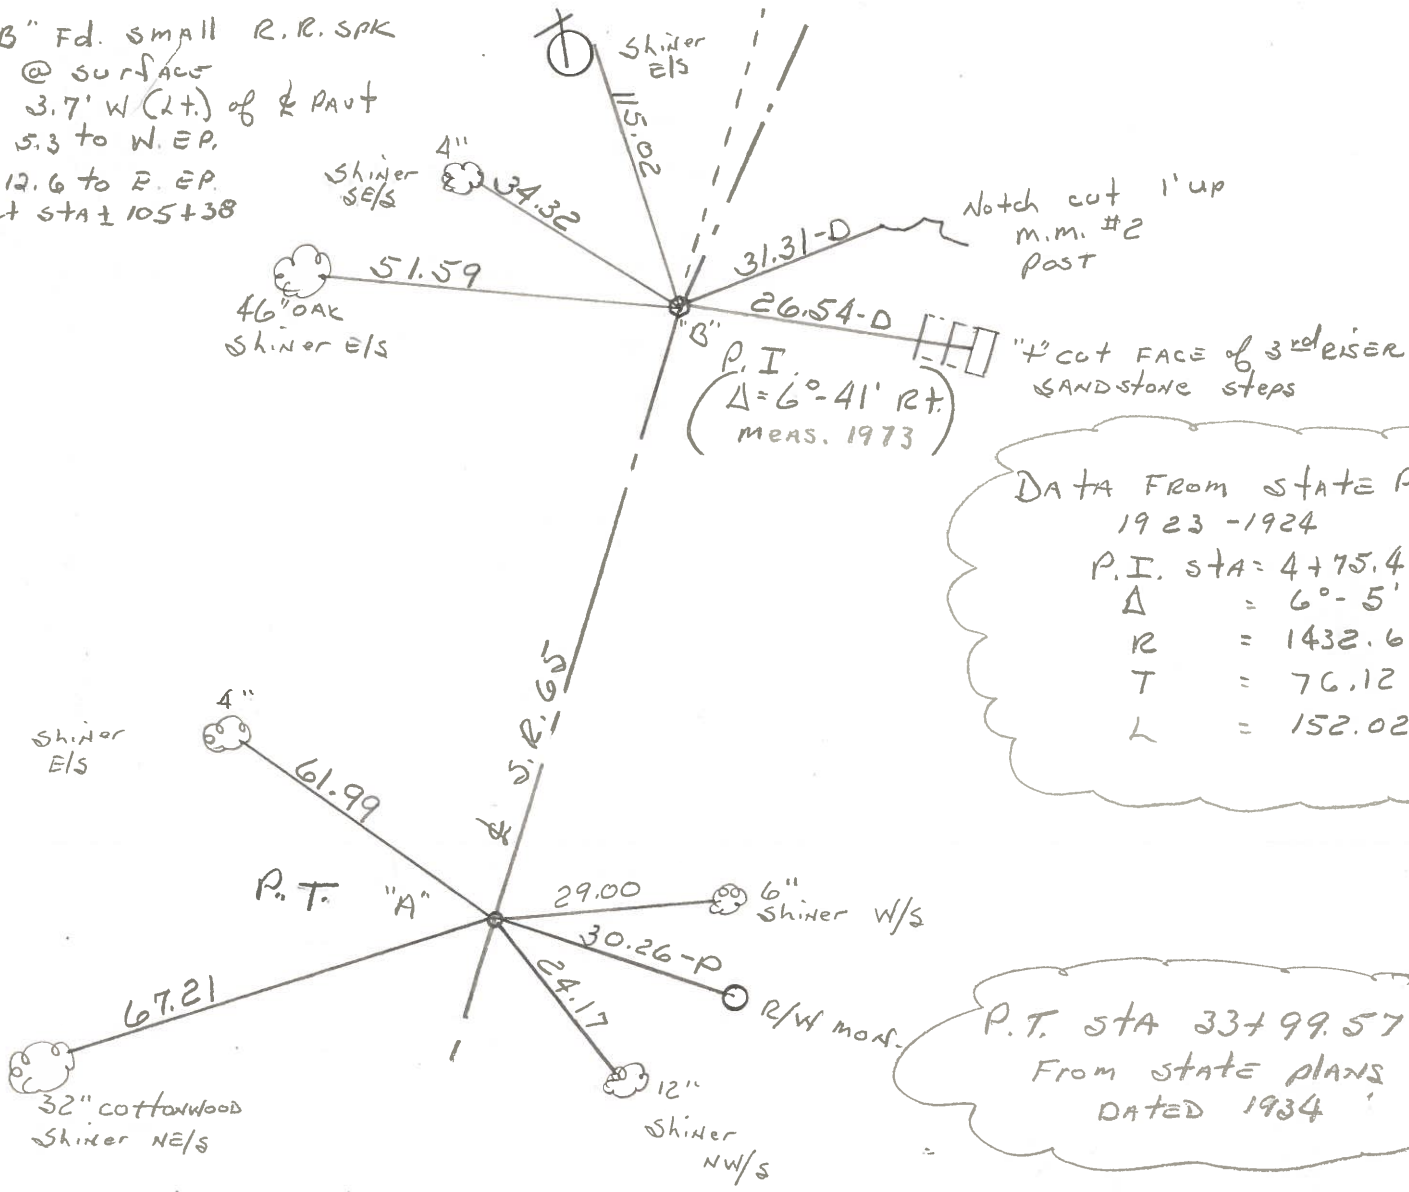 B" Fd. small R.R. SPK
@ surface
3.7' W (Lt.) of ℄ PAVT
5.3 to W. EP.
12.6 to E. EP.
STA ± 105+38
Shiner
E/S
115.02
4"
Shiner
SE/S
34.32
51.59
46" OAK
Shiner E/S
31.31-D
Notch cut 1' up
m.m. #2
Post
26.54-D
"+" cut FACE of 3rd RISER
SANDSTONE steps
"B"
P.I.
(Δ=6°-41' Rt.
MEAS. 1973)
DATA FROM STATE P
1923-1924
P.I. STA= 4+75.4
Δ = 6°-5'
R = 1432.6
T = 76.12
L = 152.02
℄ S.R. 65
4"
Shiner
E/S
61.99
P.T. "A"
29.00
6"
Shiner W/S
30.26-P
R/W MON.
24.17
12"
Shiner
NW/S
67.21
32" COTTONWOOD
Shiner NE/S
P.T. STA 33+99.57
From STATE PLANS
DATED 1934